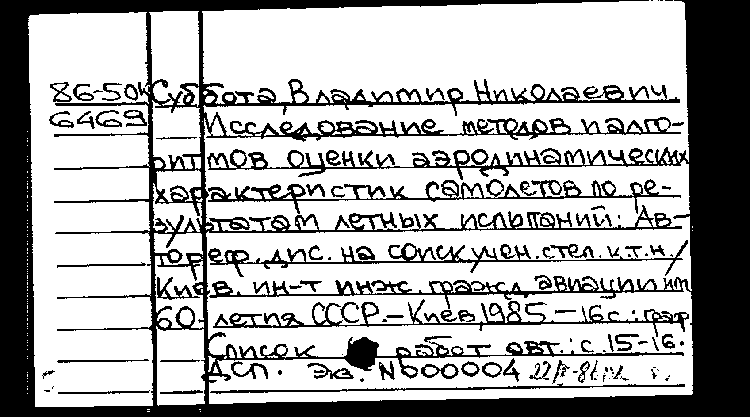 86-50к Суббота, Владимир Николаевич.
6469 Исследование методов и алго-
ритмов оценки аэродинамических
характеристик самолетов по ре-
зультатам летных испытаний: Ав-
тореф. дис. на соиск. учен. степ. к.т.н. /
Киев. ин-т инж. гражд. авиации им.
60-летия СССР. – Киев, 1985 – 16 с.: граф.
Список работ авт.: с. 15-16.
ДСП. Экз. №00004